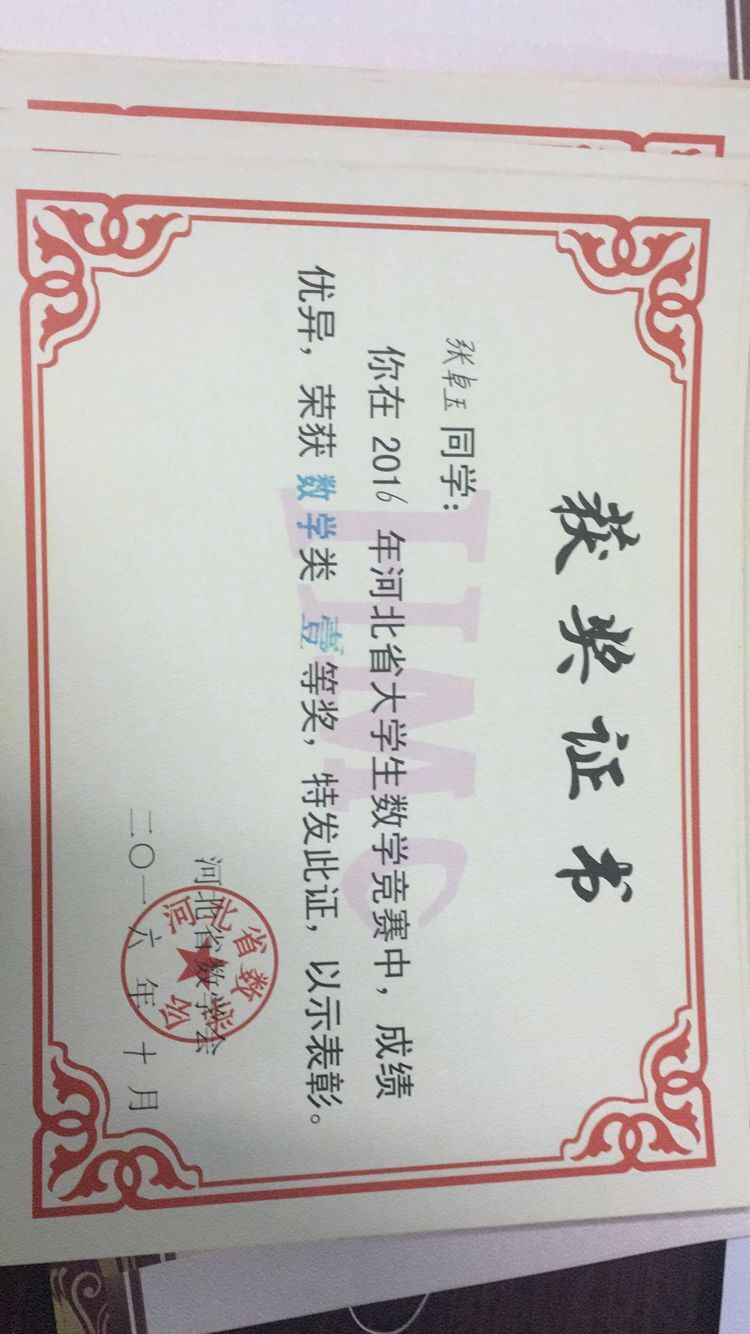 获奖证书
张卓玉同学：
你在 2016 年河北省大学生数学竞赛中，成绩
优异，荣获 数学类 壹等奖，特发此证，以示表彰。
HMC
河北省数学会
河北省数学会
二〇一六年十月